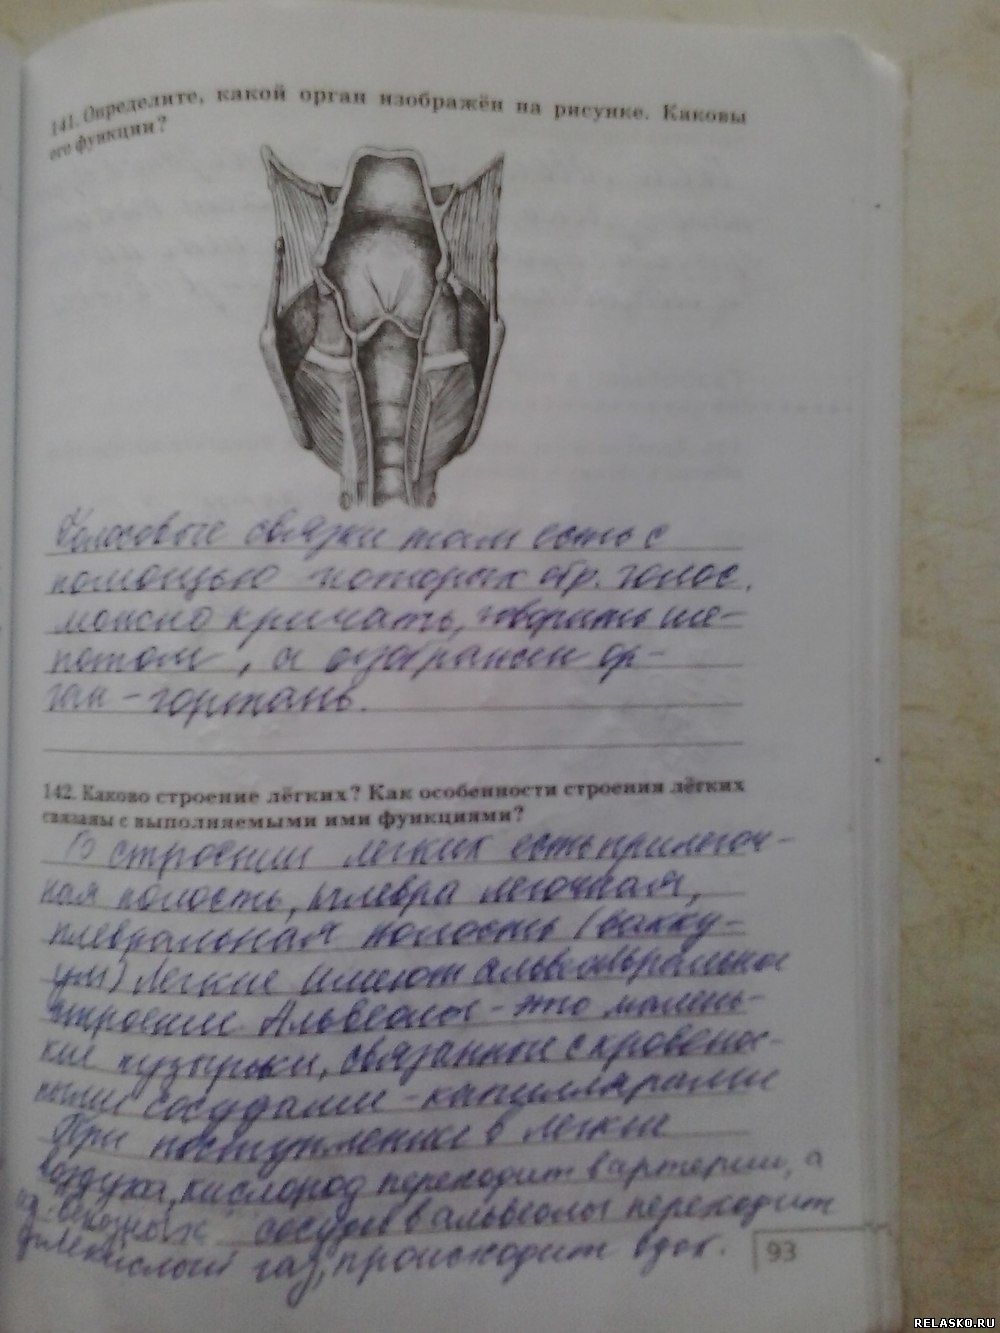 141. Определите, какой орган изображён на рисунке. Каковы
его функции?
Голосовые связки там есть с
помощью которых обр. голос.
можно кричать, говорить ше-
потом, а изображен ор-
ган - гортань.
142. Каково строение лёгких? Как особенности строения лёгких
связаны с выполняемыми ими функциями?
В строении легких есть прилегоч-
ная полость, плевра легочная,
плевральная полость (вакку-
ум) Легкие имеют альвеовральное
строение. Альвеолы - это малень-
кие пузырьки, связанные с кровенос-
ными сосудами - капиллярами
При поступлении в легкие
воздуха, кислород переходит в артерии, а
из венозных сосудов в альвеолы переходит
углекислый газ, происходит вдох.
93
RELASKO.RU